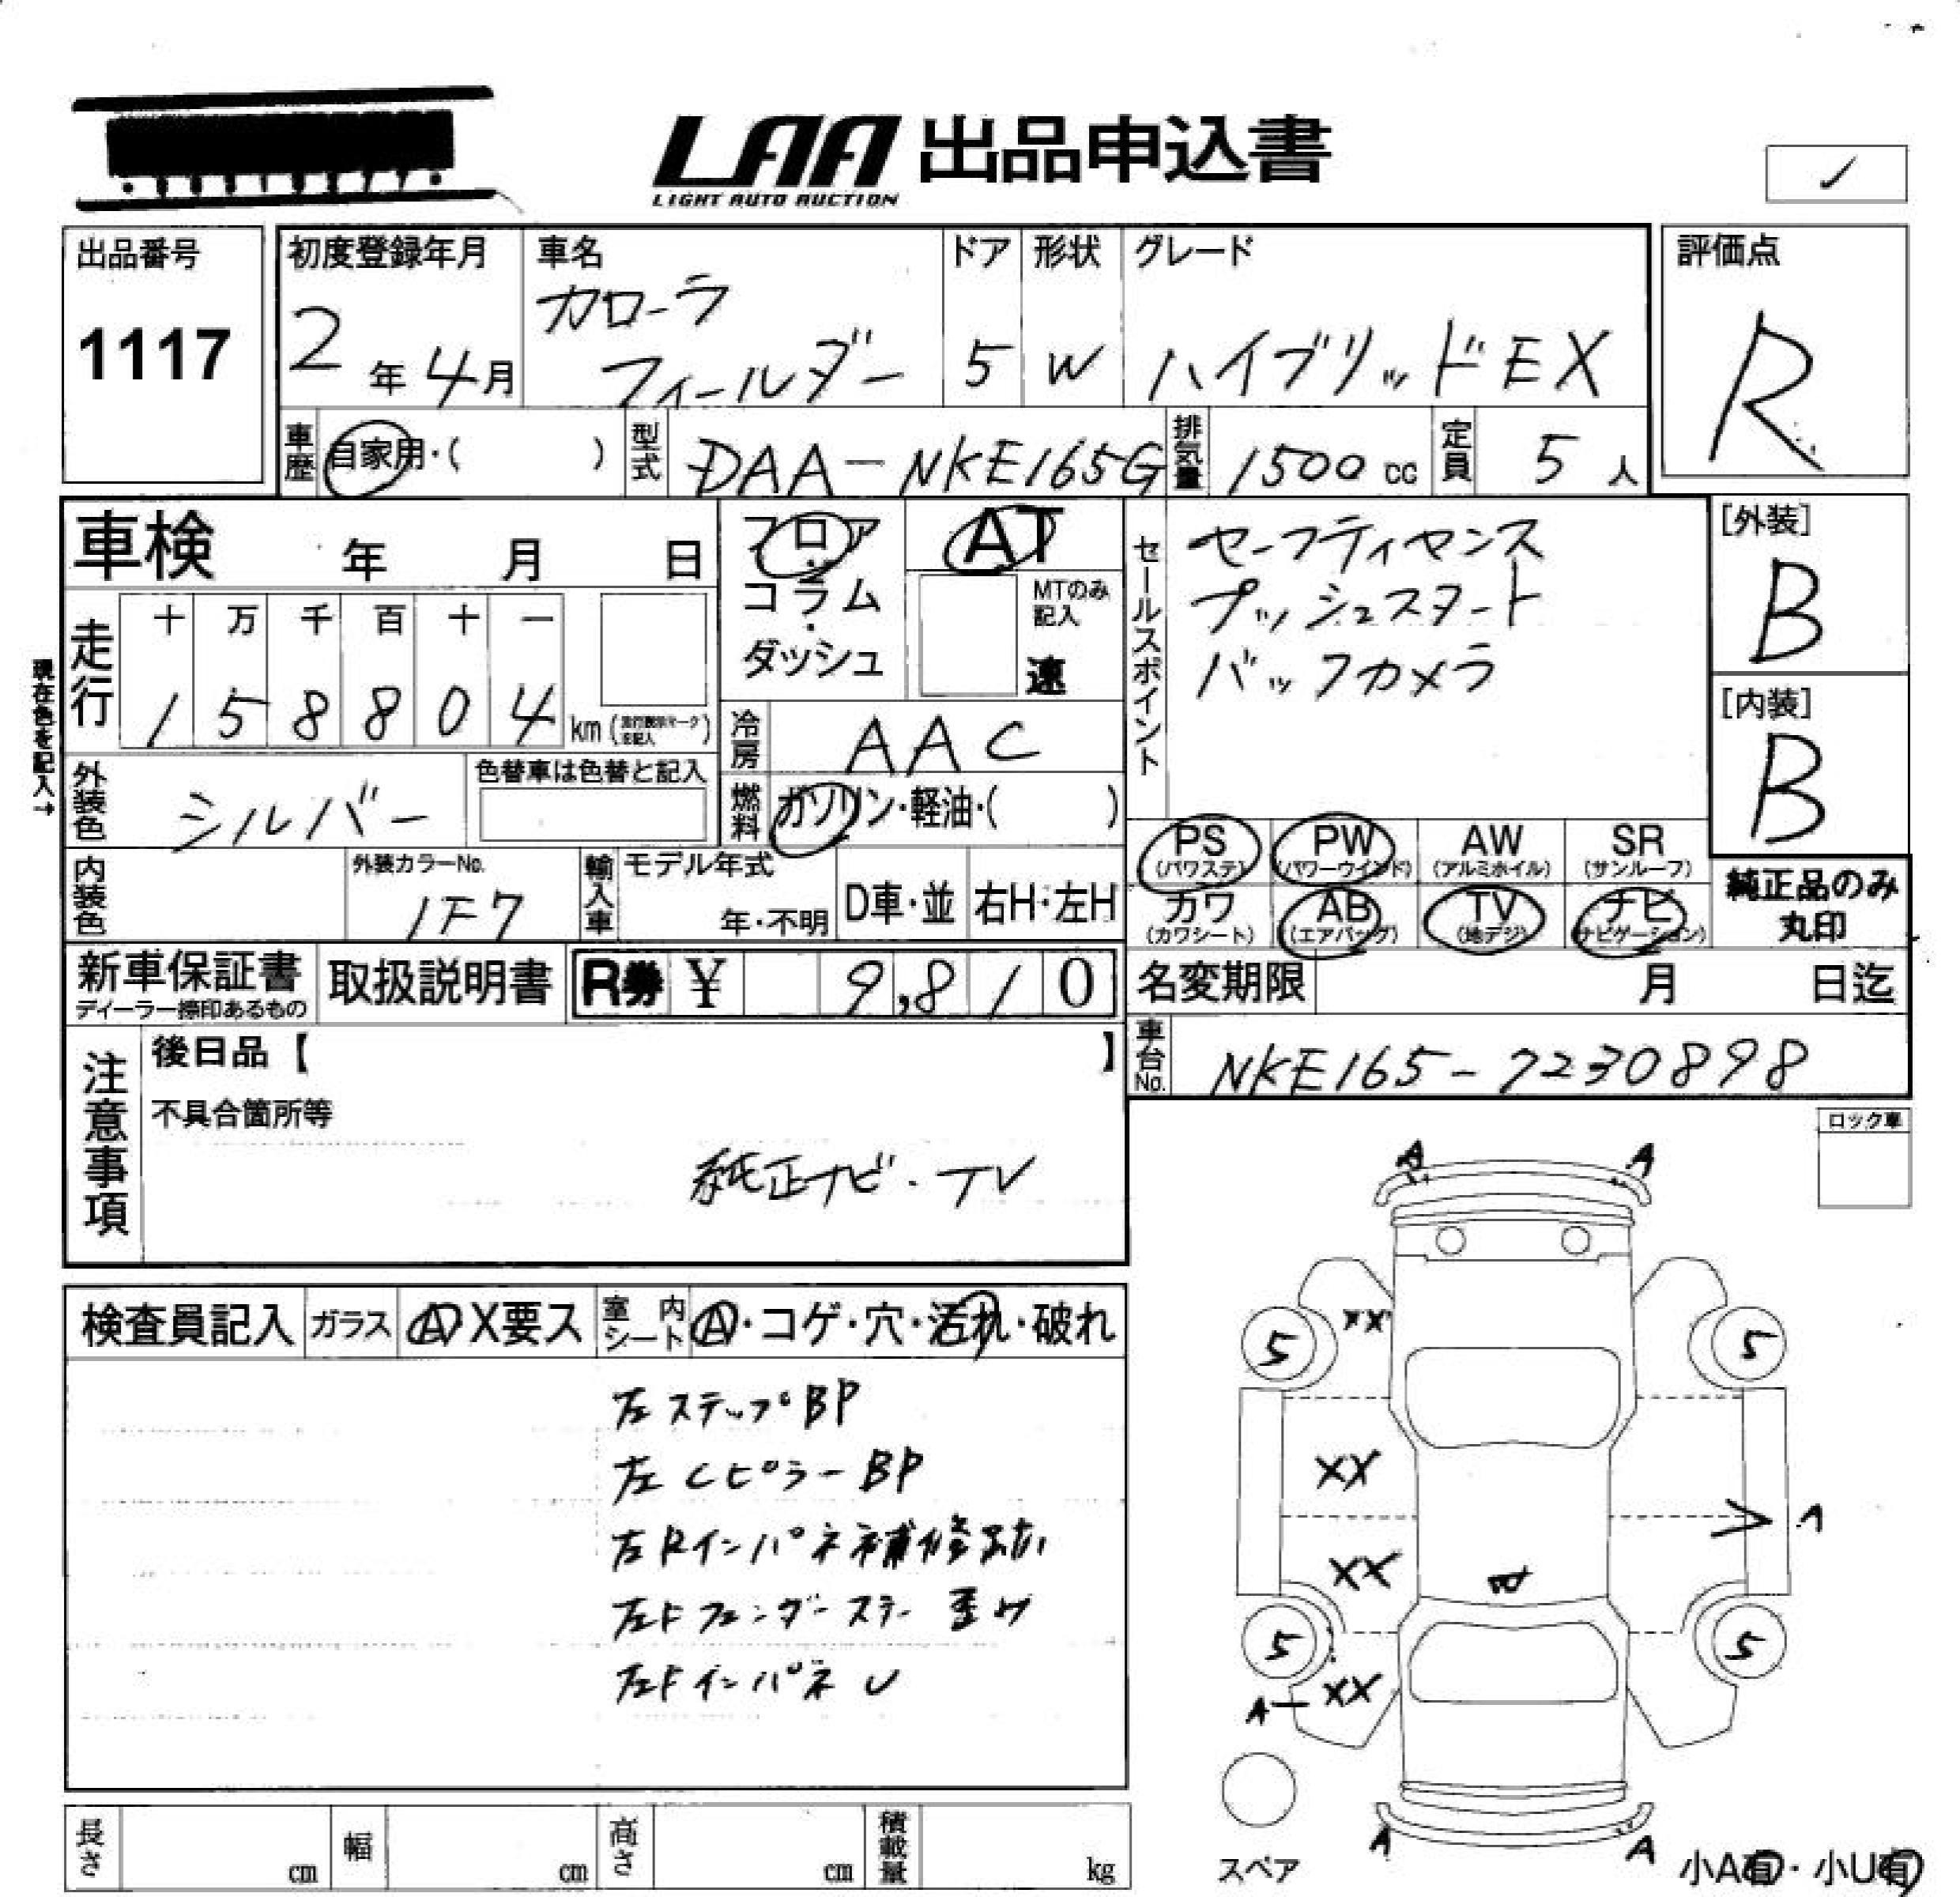 LAA 出品申込書
LIGHT AUTO AUCTION
出品番号
1117
初度登録年月
2年4月
車名
カローラ
フィールダー
ドア
5
形状
W
グレード
ハイブリッドEX
評価点
R
車歴
自家用・( )
型式
DAA-NKE165G
排気量
1500 cc
定員
5人
車検 年 月 日
フロア
コラム
・
ダッシュ
AT
MTのみ
記入
速
セールスポイント
セーフティセンス
プッシュスタート
バックカメラ
[外装]
B
[内装]
B
現在色を記入→
走行
十 万 千 百 十 一
1 5 8 8 0 4 km
冷房
AAC
外装色
シルバー
色替車は色替と記入
燃料
ガソリン・軽油・( )
PS
(パワステ)
PW
(パワーウインド)
AW
(アルミホイル)
SR
(サンルーフ)
カワ
(カワシート)
AB
(エアバッグ)
TV
(地デジ)
ナビ
(ナビゲーション)
純正品のみ
丸印
内装色
外装カラーNo.
1F7
輸入車
モデル年式
年・不明
D車・並
右H・左H
新車保証書
ディーラー捺印あるもの
取扱説明書
R券 ¥ 9,810
名変期限 月 日迄
車台No.
NKE165-7230898
注意事項
後日品【 】
不具合箇所等
純正ナビ・TV
ロック車
検査員記入
ガラス
A X要ス
室内
シート
A・コゲ・穴・汚れ・破れ
左ステップBP
左CピラーBP
左Rインパネ補修跡有
左Fフェンダーステー歪ミ
左FインパネU
A A
XX
5 5
XX
A
XX
B
5 5
A XX
A A
スペア
小A有・小U有
長さ cm
幅 cm
高さ cm
積載量 kg